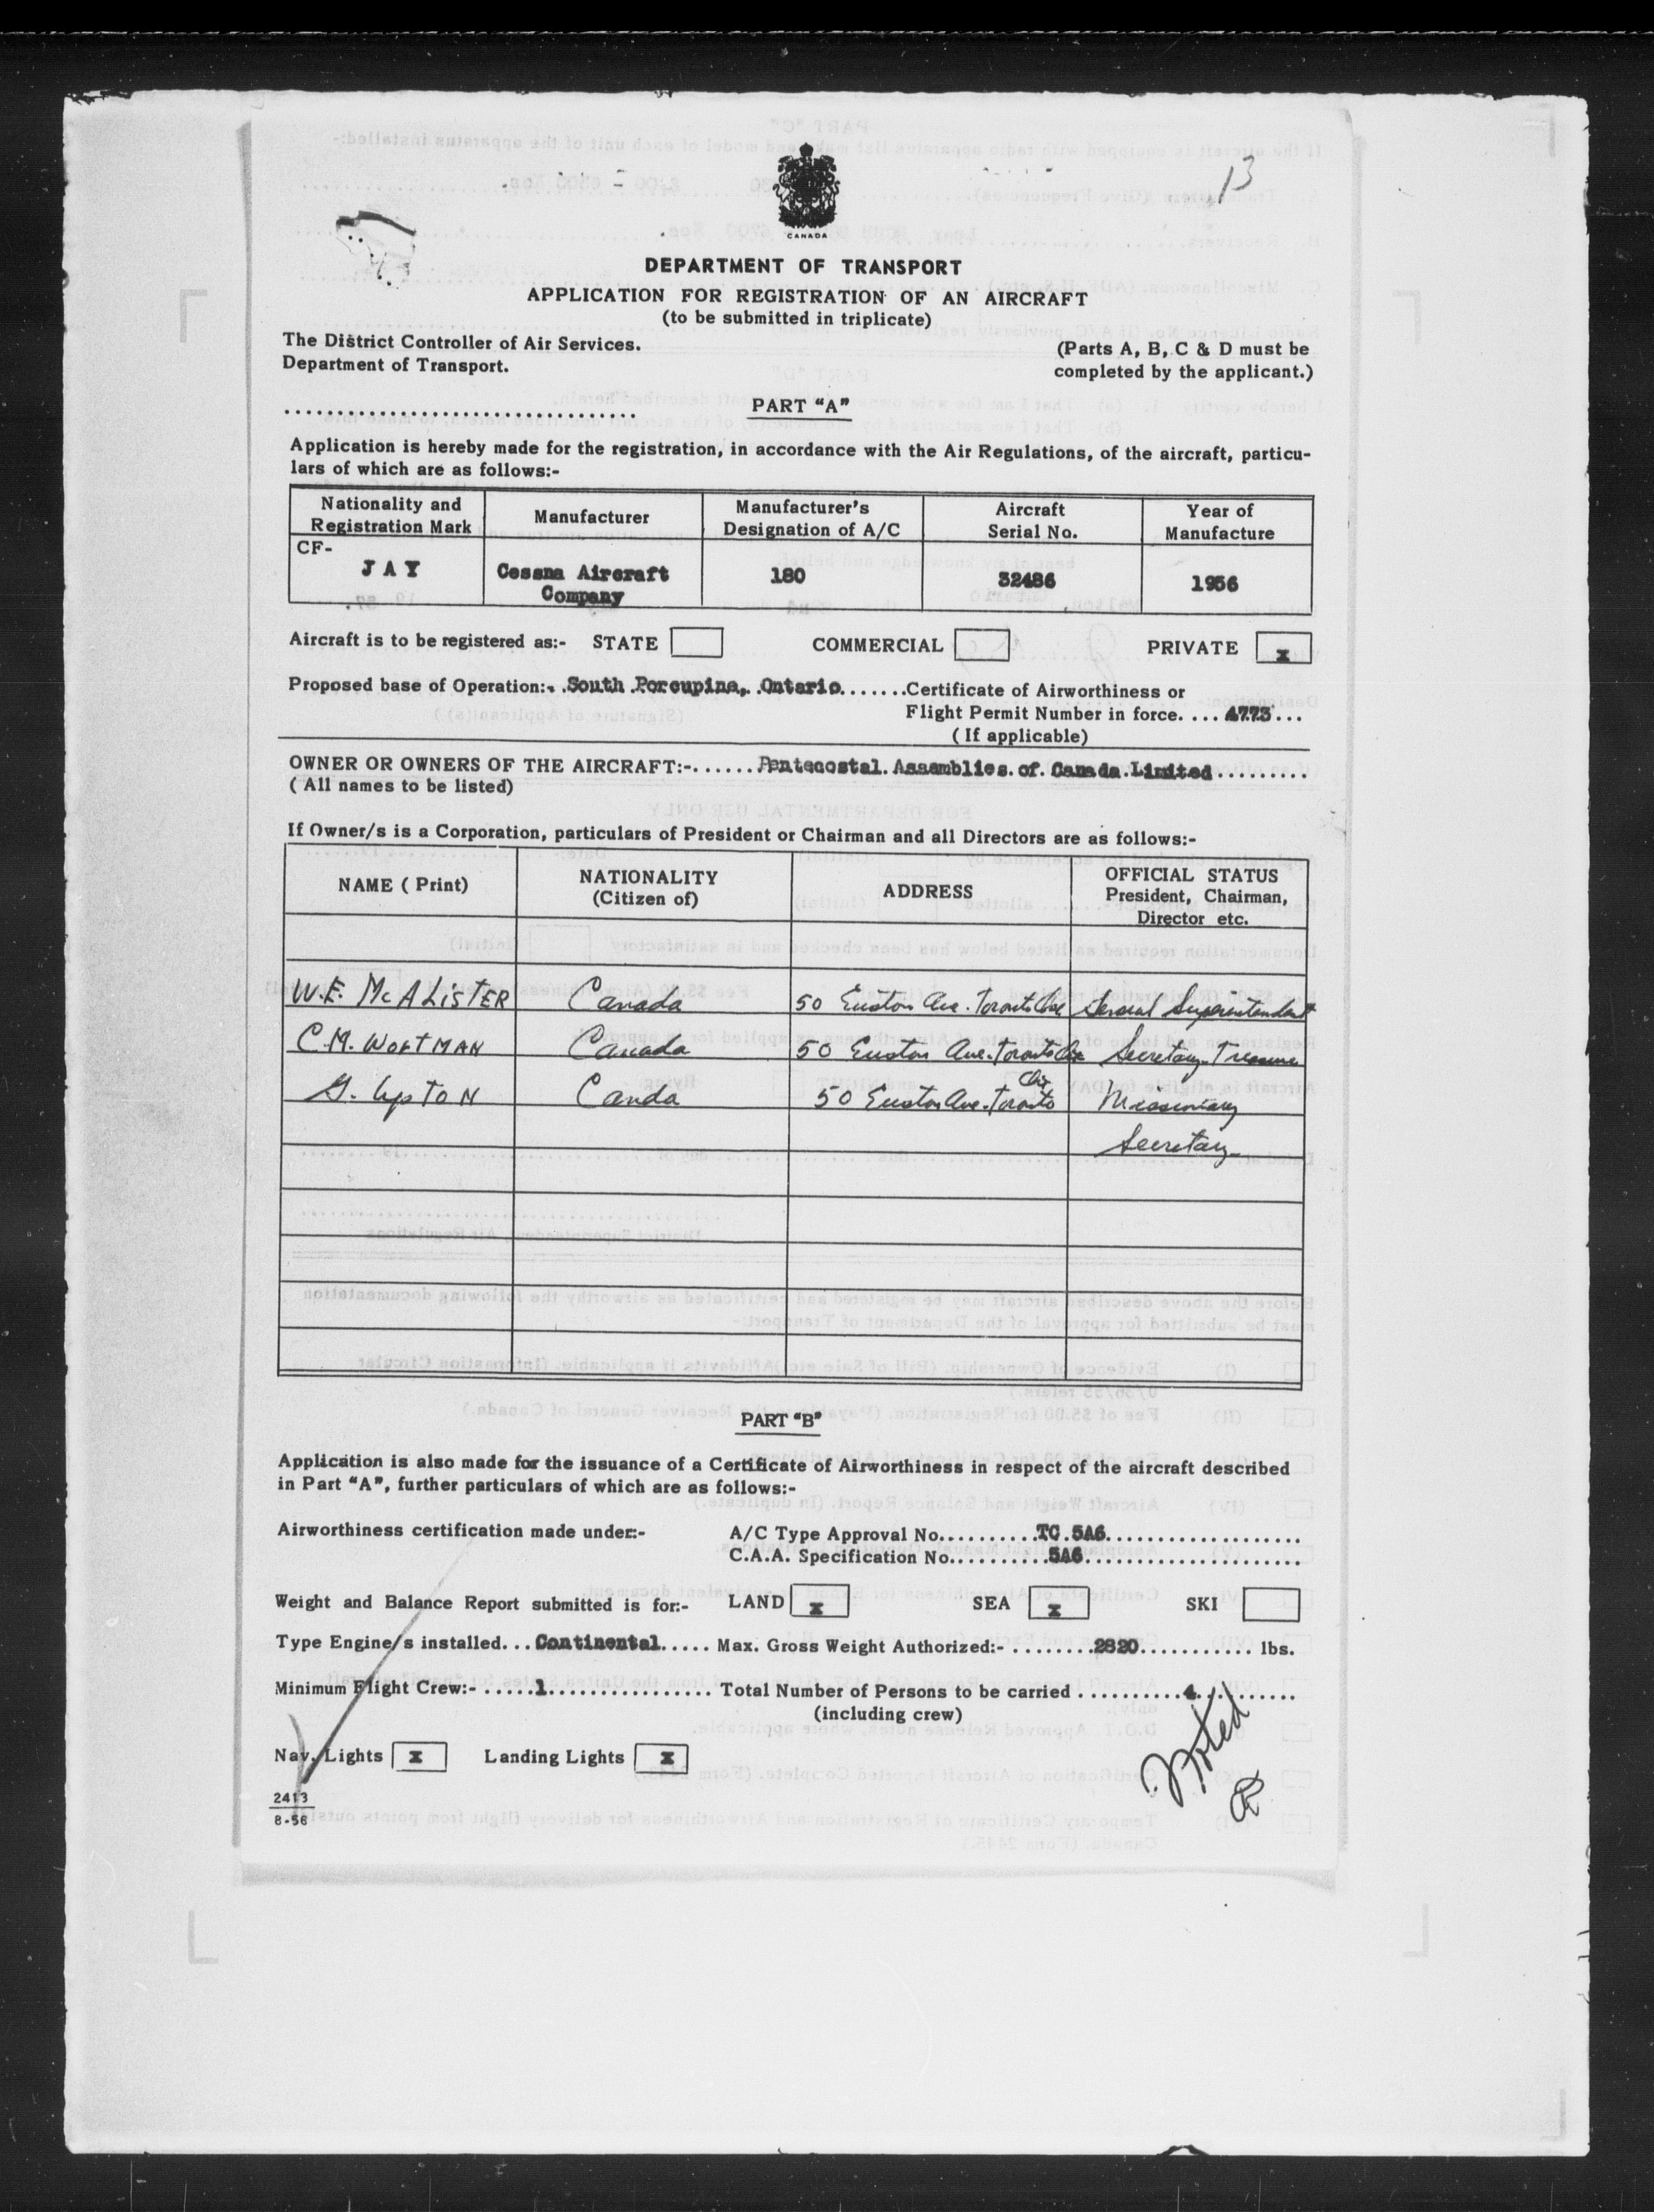 13
CANADA
DEPARTMENT OF TRANSPORT
APPLICATION FOR REGISTRATION OF AN AIRCRAFT
(to be submitted in triplicate)
The District Controller of Air Services.
Department of Transport.
(Parts A, B, C & D must be
completed by the applicant.)
PART "A"
Application is hereby made for the registration, in accordance with the Air Regulations, of the aircraft, particu-
lars of which are as follows:-
Nationality and Registration Mark Manufacturer Manufacturer's Designation of A/C Aircraft Serial No. Year of Manufacture
CF-
JAY Cessna Aircraft Company 180 32486 1956
Aircraft is to be registered as:- STATE COMMERCIAL PRIVATE x
Proposed base of Operation:- South Porcupine, Ontario.......Certificate of Airworthiness or
Flight Permit Number in force.... 4773...
(If applicable)
OWNER OR OWNERS OF THE AIRCRAFT:-......Pentecostal Assemblies of Canada Limited.........
(All names to be listed)
If Owner/s is a Corporation, particulars of President or Chairman and all Directors are as follows:-
NAME (Print) NATIONALITY (Citizen of) ADDRESS OFFICIAL STATUS President, Chairman, Director etc.
W.E. McALiSTER Canada 50 Euston Ave. Toronto Ont General Superintendent
C.M. WORTMAN Canada 50 Euston Ave. Toronto Ont Secretary-Treasure
G. UpTON Canda 50 Euston Ave. Toronto Ont Missionary
Secretary
PART "B"
Application is also made for the issuance of a Certificate of Airworthiness in respect of the aircraft described
in Part "A", further particulars of which are as follows:-
Airworthiness certification made under:- A/C Type Approval No..........TC 5A6...................
C.A.A. Specification No..........5A6......................
Weight and Balance Report submitted is for:- LAND x SEA x SKI
Type Engine/s installed...Continental..... Max. Gross Weight Authorized:- ........2820........... lbs.
Minimum Flight Crew:- .....1................ Total Number of Persons to be carried ..........4..........
(including crew)
Noted
Nav. Lights x Landing Lights x
2413
8-56